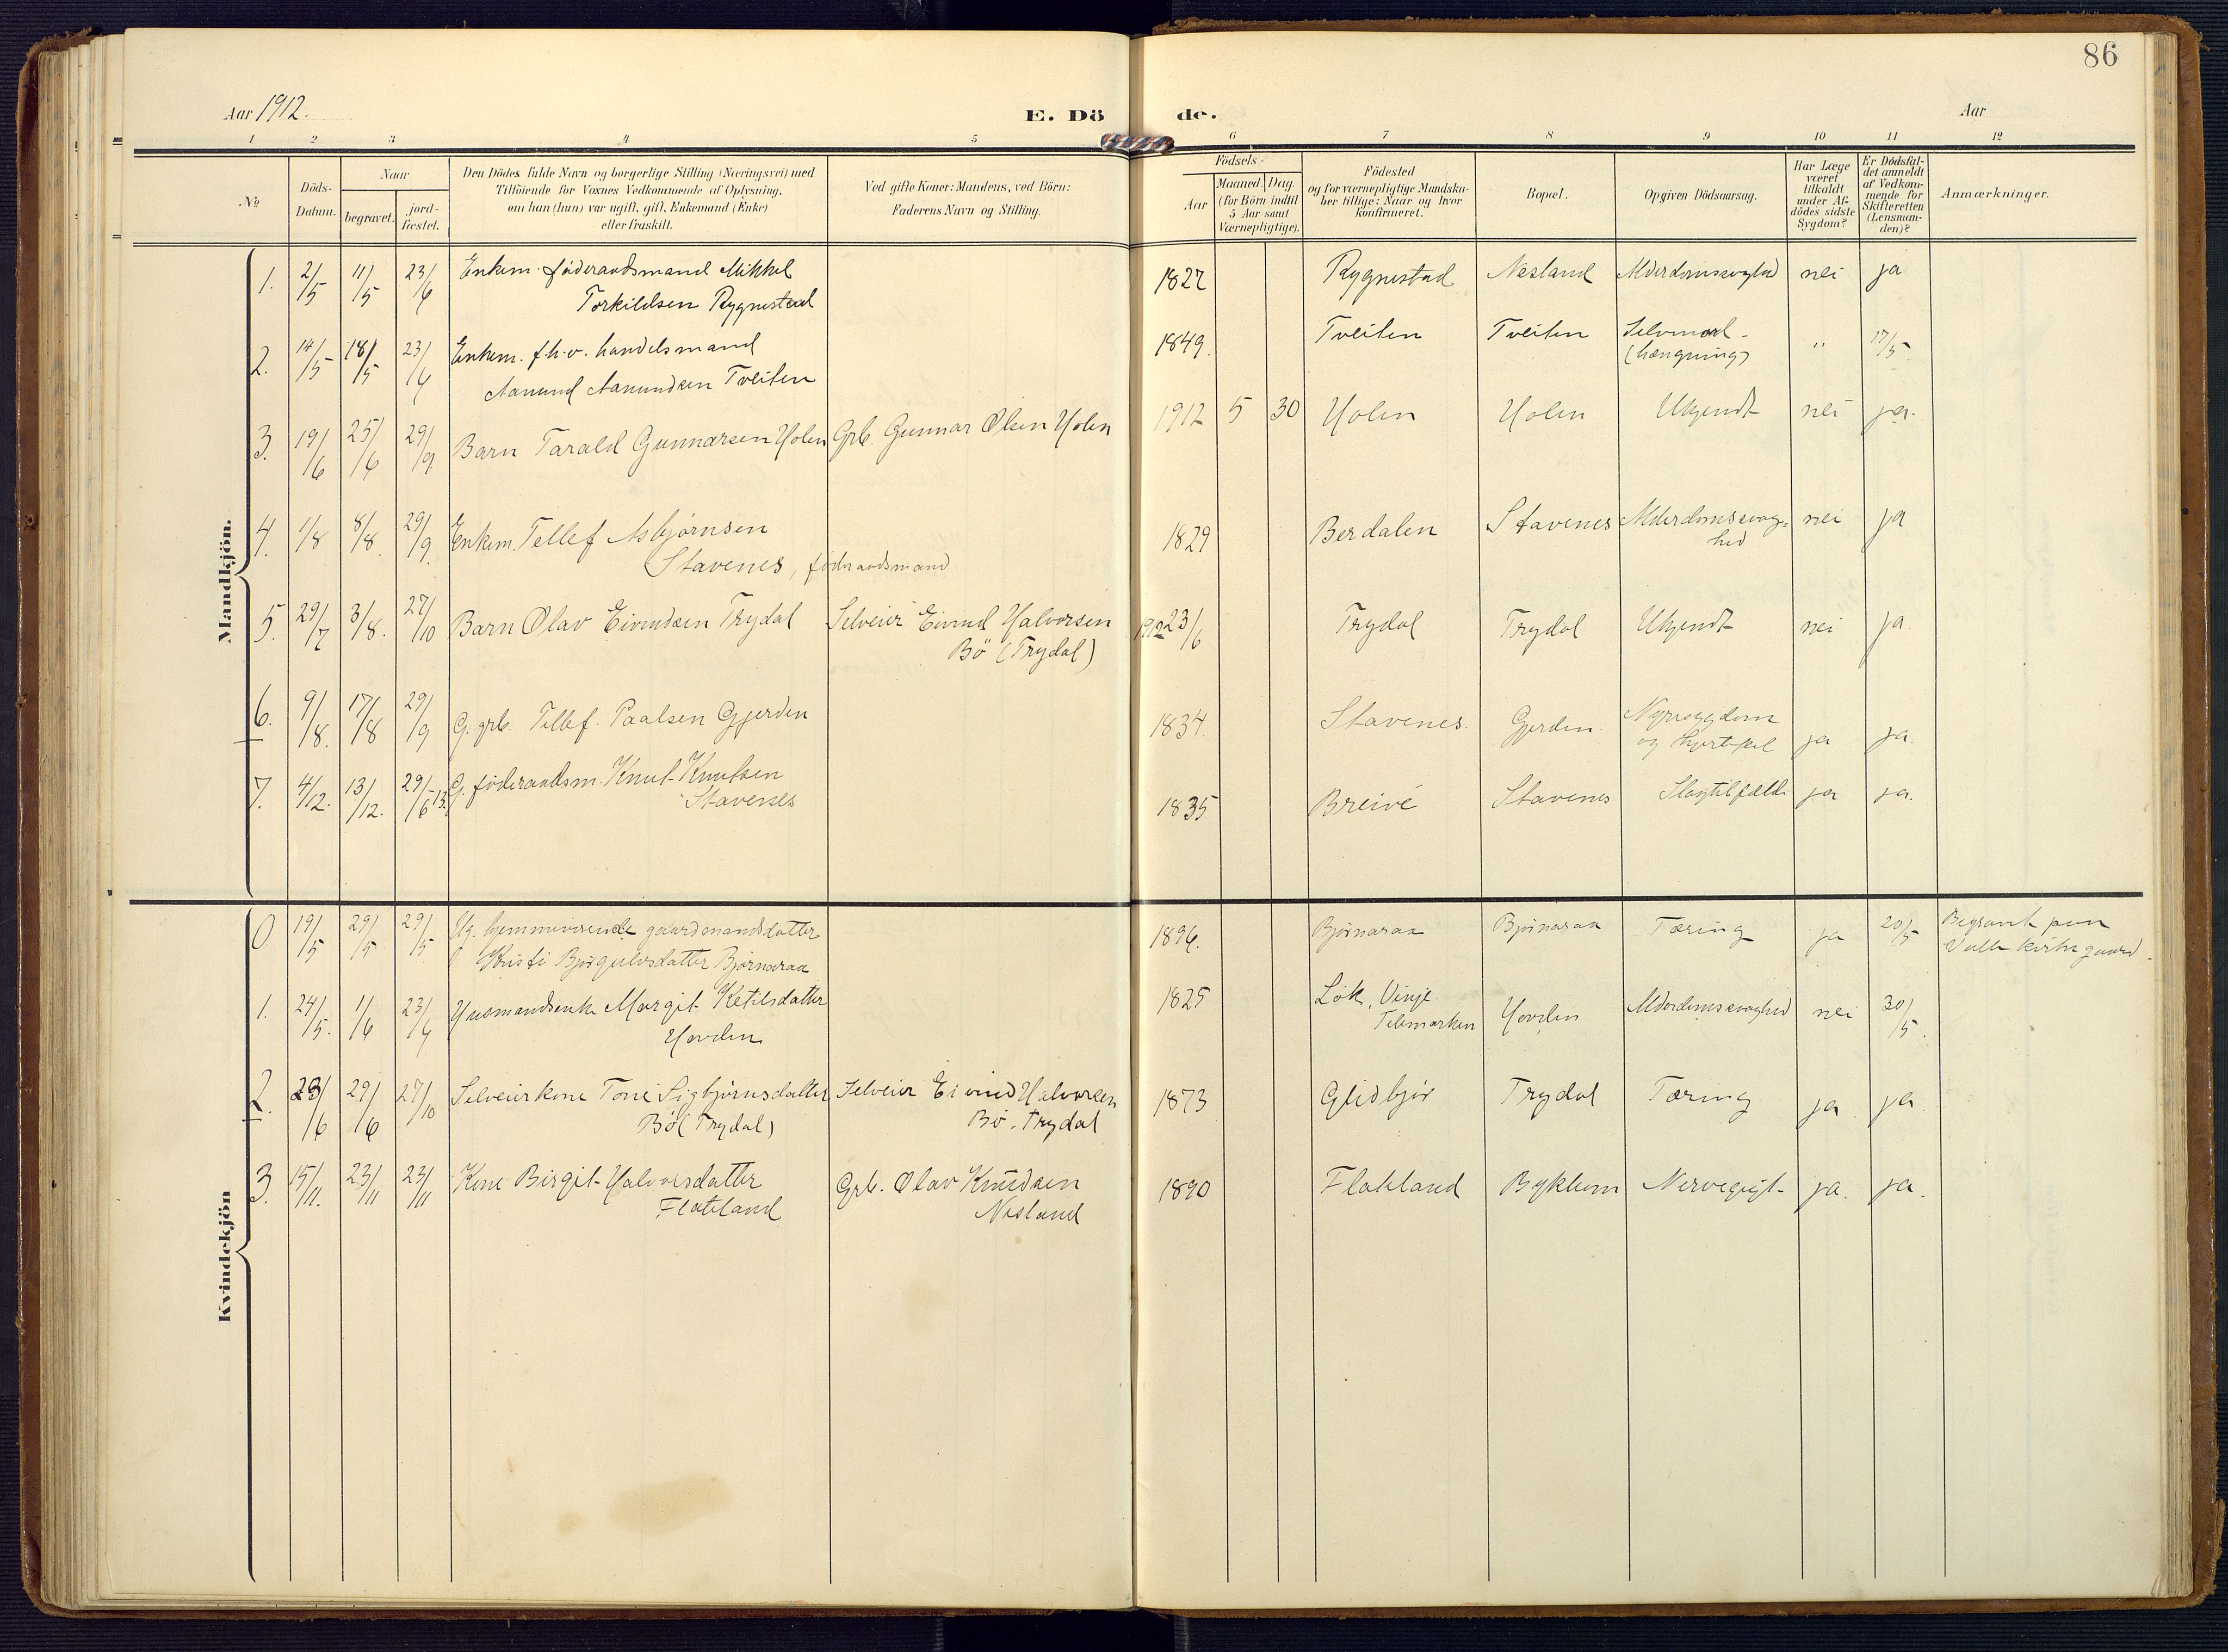 86
Aar 1912.
E. Dö de.
Aar
1 2 3 4 5 6 7 8 9 10 11 12
No
Döds-
Datum.
Naar
begravet.
jord-
fæstet.
Den Dödes fulde Navn og borgerlige Stilling (Næringsvei) med
Tilföiende for Voxnes Vedkommende af Oplysning,
om han (hun) var ugift, gift, Enkemand (Enke)
eller fraskilt.
Ved gifte Koner: Mandens, ved Börn:
Faderens Navn og Stilling.
Födsels-
Aar
Maaned. Dag
(for Börn indtil
5 Aar samt
Værnepligtige).
Födested
og for værnepligtige Mandska-
ber tillige: Naar og hvor
konfirmeret.
Bopæl.
Opgiven Dödsaarsag.
Har Læge
været
tilkaldt
under Af-
dödes sidste
Sygdom?
Er Dödsfal-
det anmeldt
af Vedkom-
mende for
Skifteretten
(Lensman-
den)?
Anmærkninger.
Mandkjön.
1. 2/5 11/5 23/6 Enkem. föderaadsmand Mikkel
Torkildsen Rygnestad
1827 Rygnestad Nesland Alderdomssvaghed nei ja
2. 14/5 18/5 23/6 Enkem. f.h.v. handelsmand
Aanund Aanundsen Tveiten
1849. Tveiten Tveiten Selvmord - (hængning) " 17/5.
3. 19/6 25/6 29/9. Barn Tarald Gunnarsen Holen Grb. Gunnar Olsen Holen
1912 5 30 Holen Holen Ukjendt nei ja.
4. 1/8 8/8. 29/9. Enkem. Tellef Asbjørnsen
Stavenes, föderaadsmand
1829 Berdalen Stavenes Alderdomssvag=
hed nei ja
5. 29/7 3/8. 27/10 Barn Olav Eivindsen Trydal Selveier Eivind Halvorsen
Bö (Trydal)
1912 23/6 Trydal Trydal Ukjendt nei ja.
6. 9/8. 17/8 29/9 G. grb. Tellef Paalsen Gjerden
1834. Stavenes. Gjerden. Nyresygdom
og hjertefeil ja ja.
7. 4/12. 13/12. 29/6-13. G. föderaadsm. Knut Knutsen
Stavenes
1835 Breive Stavenes Slagtilfælde ja ja.
Kvindekjön
0 19/5 29/5 29/5 Ug. hjemmeværende gaardmandsdatter
Kristi Bjørgulvsdatter Bjørnaraa
1896. Bjørnaraa Bjørnaraa Tæring ja 20/5 Begravet paa
Valle kirkegaard.
1. 24/5. 1/6 23/6 Husmandsenke Margit Ketilsdatter
Hovden
1825 Løk, Vinje
Telemarken Hovden Alderdomssvaghed nei 30/5.
2. 23/6 29/6 27/10 Selveierkone Tone Sigbjørnsdatter Selveier Eivind Halvorsen
Bö (Trydal) Bö. Trydal
1873 Glidbjør Trydal Tæring ja ja
3. 15/11. 23/11 23/11 Kone Birgit Halvorsdatter Grb. Olav Knudsen
Flatland Nesland
1890 Flatland Byklum Nervegigt ja. ja.